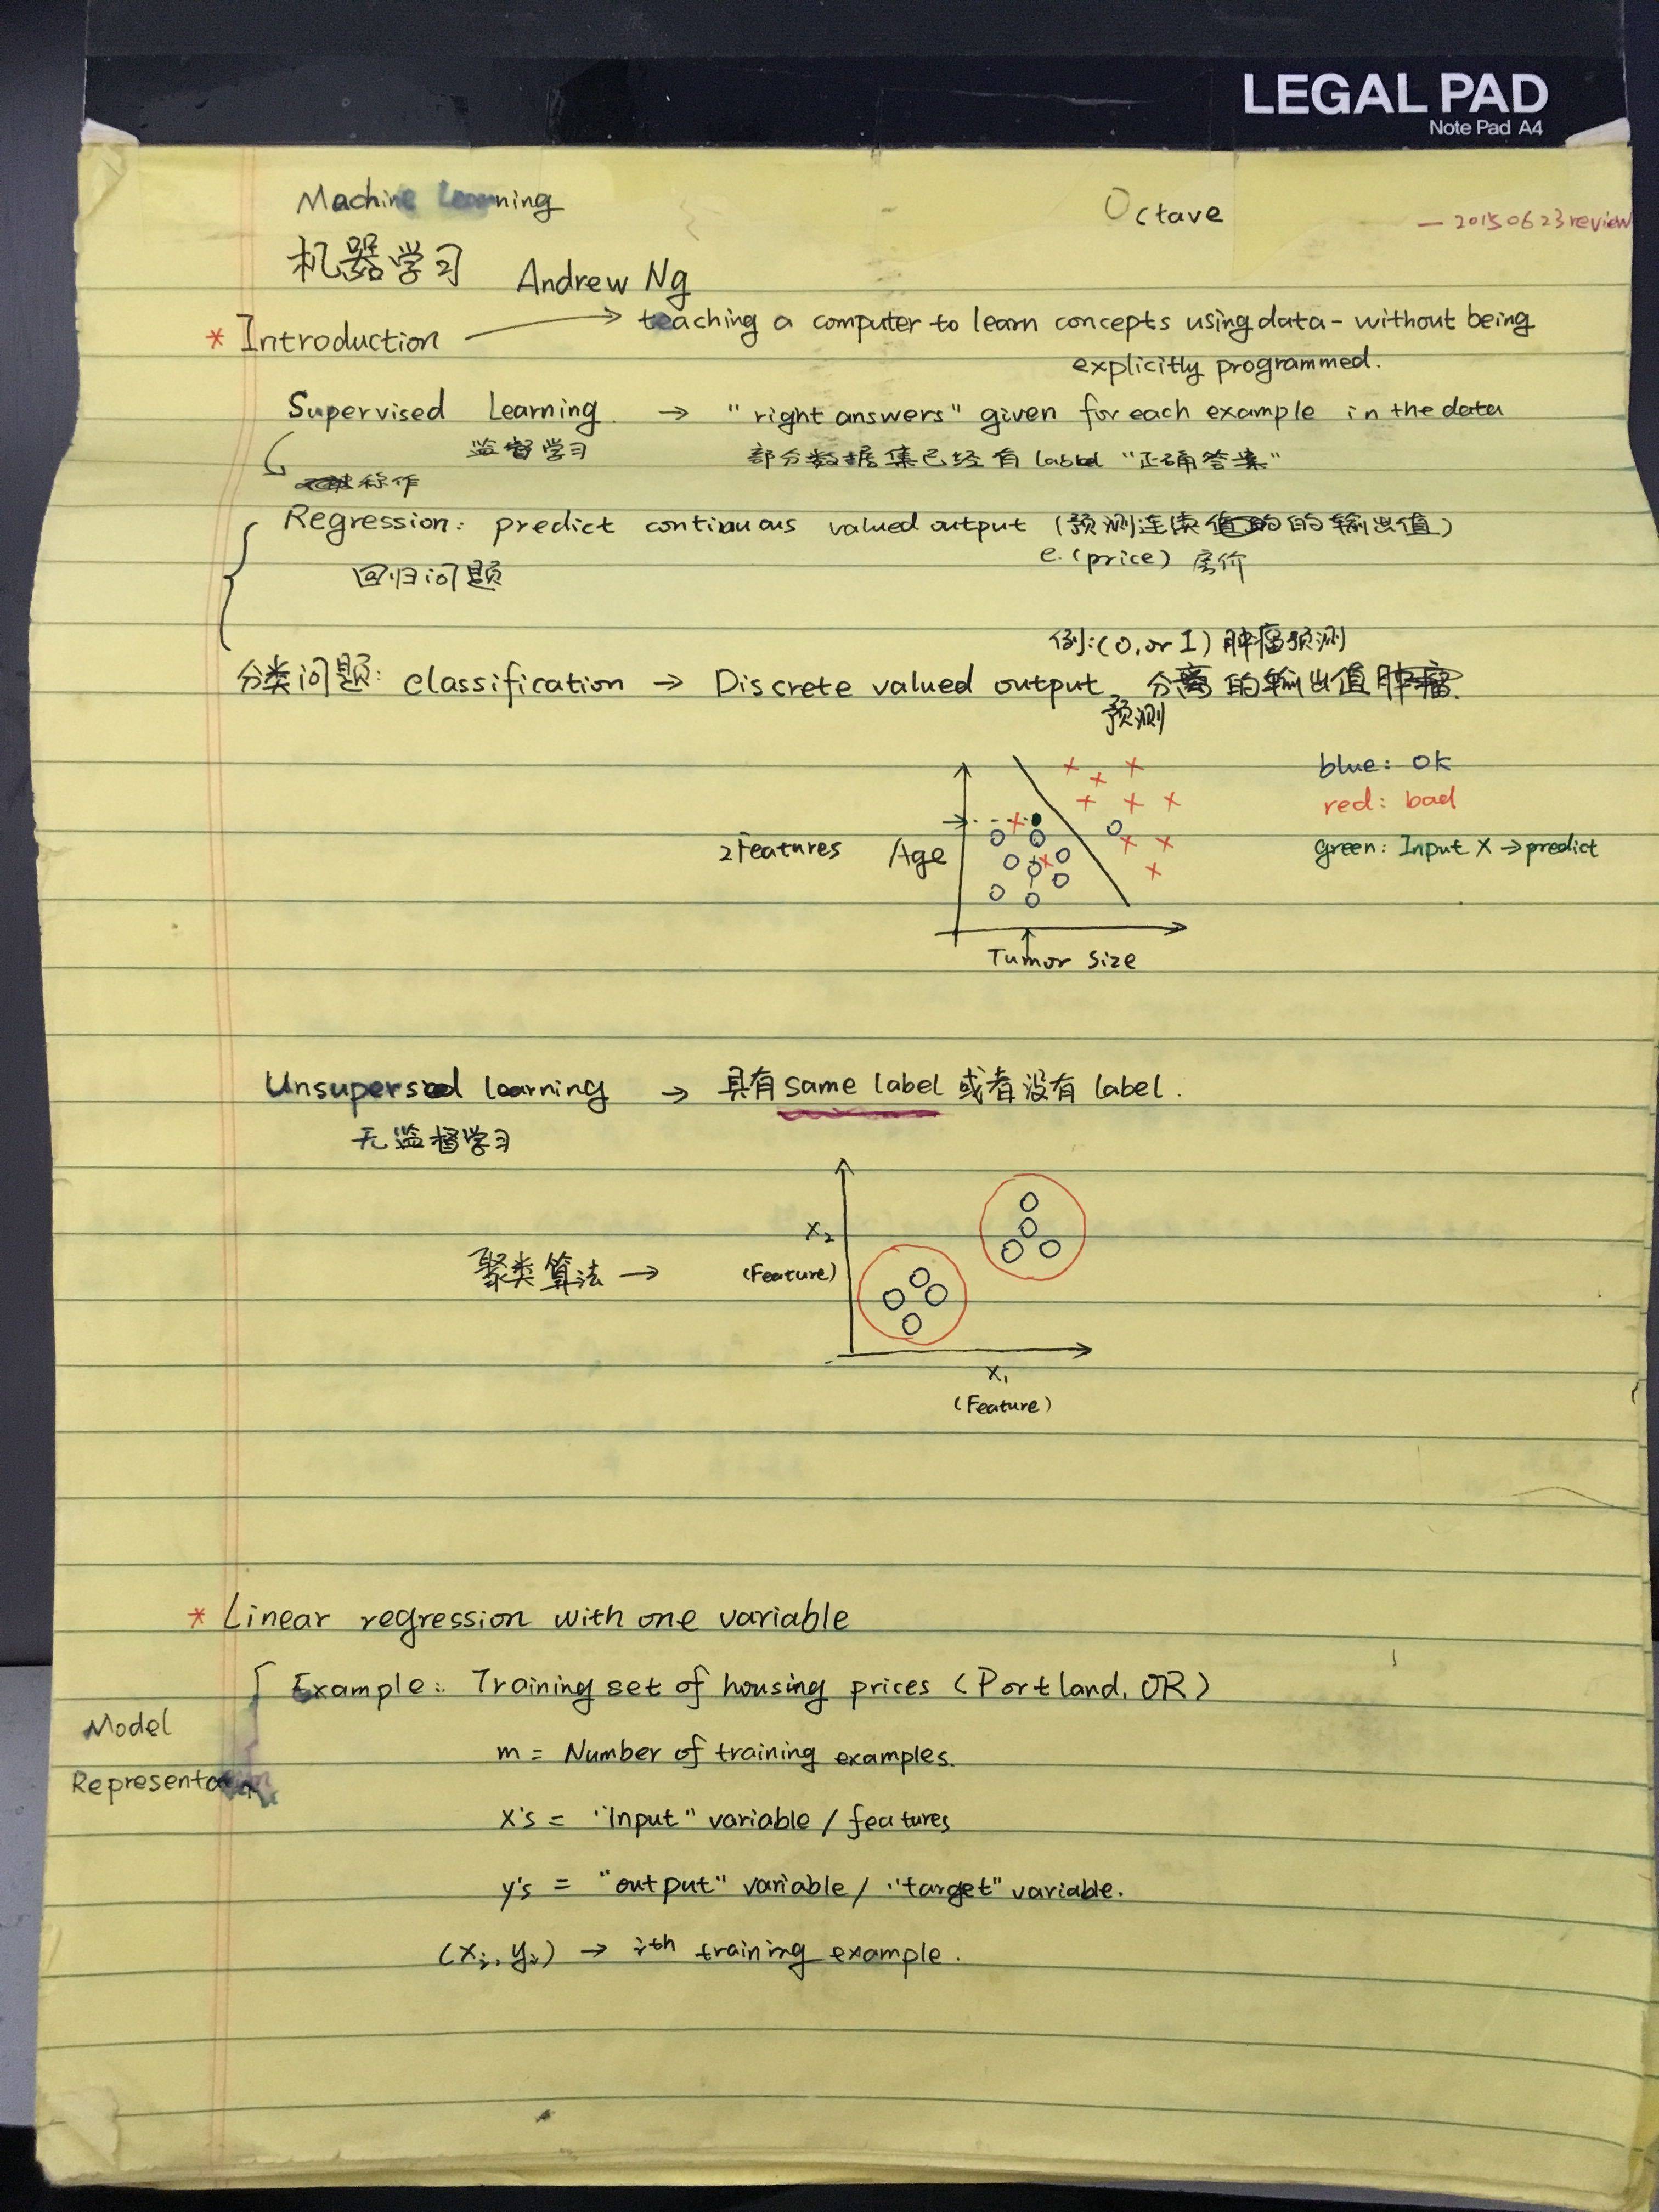 LEGAL PAD
Note Pad A4
Machine Learning
Octave
— 20150623 review
机器学习 Andrew Ng
* Introduction → teaching a computer to learn concepts using data - without being
explicitly programmed.
Supervised Learning → "right answers" given for each example in the data
监督学习 部分数据集已经有 label "正确答案"
称作
Regression: predict continuous valued output (预测连续值的的输出值)
e.(price) 房价
回归问题
例:(0, or 1) 肿瘤预测
分类问题: classification → Discrete valued output, 分离的输出值肿瘤
预测
blue: OK
red: bad
green: Input X → predict
2 Features Age
Tumor Size
Unsupersed learning → 具有 same label 或者没有 label.
无监督学习
X₂
聚类算法 → (Feature)
X₁
(Feature)
* Linear regression with one variable
Example: Training set of housing prices (Portland, OR)
Model
m = Number of training examples.
X's = "Input" variable / features
y's = "output" variable / "target" variable.
(xᵢ, yᵢ) → ith training example.